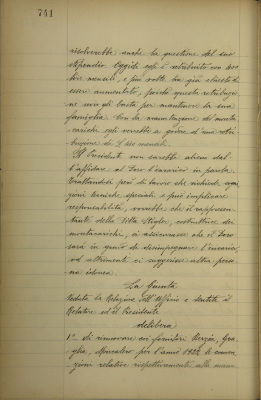 741
risolverebbe anche la questione del suo
stipendio. Oggidì egli è retribuito con
mensili, e più volte ha già chiesto di
essere aumentato, poiché questa retribuzio
ne non gli basta per mantenere la sua
famiglia. Con la manutenzione dei monta
carichi egli verrebbe a godere d'una retri
buzione di L. mensili.
Il Presidente non sarebbe alieno dal
l'affidare al Toro l'incarico in parola.
Trattandosi però di lavoro che richiede cogni
zioni tecniche speciali e può implicare
responsabilità, vorrebbe che il rappresen
tante della Ditta Stigler, costruttrice dei
montacarichi, si assicurasse che il Toro
sarà in grado di disimpegnare l'incarico,
od altrimenti ci suggerisse altra perso
na idonea.
La Giunta
Veduta la Relazione dell'Ufficio e sentito il
Relatore ed il Presidente
delibera
1° di rinnovare coi fornitori
per l'anno 192 le conven
zioni relative rispettivamente alla